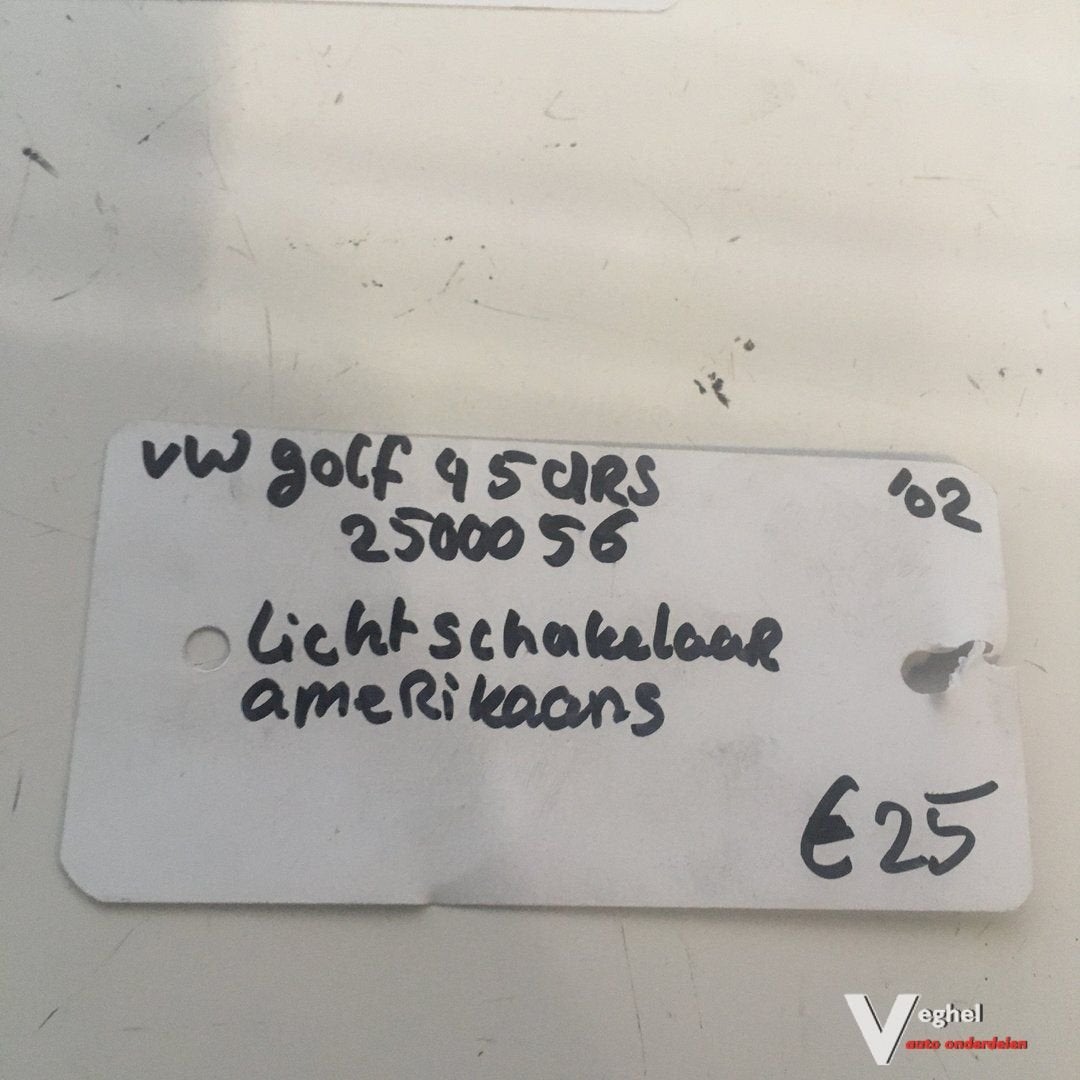 vw golf 4 5 dRS '02
2500056
Lichtschakelaar
ameRikaans
€25
Veghel
auto onderdelen